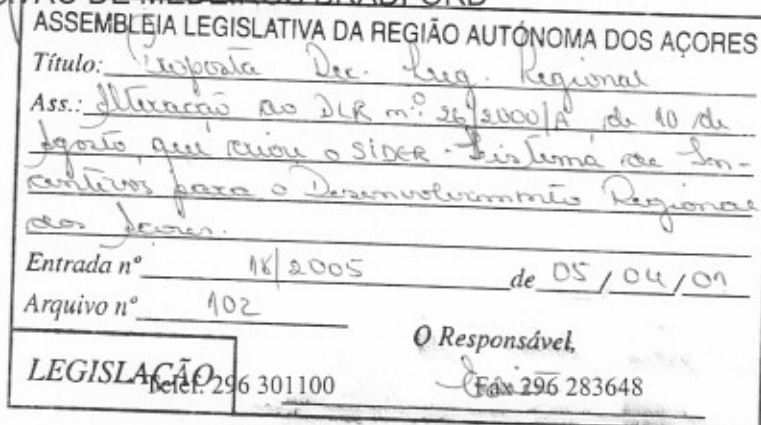 DE MEDEIROS BRADFORD
ASSEMBLEIA LEGISLATIVA DA REGIÃO AUTÓNOMA DOS AÇORES
Título: Proposta Dec. Leg. Regional
Ass.: Alteração ao DLR n.º 26/2000/A de 10 de
Agosto que criou o SIDER - Sistema de In-
centivos para o Desenvolvimento Regional
dos Açores.
Entrada nº 18/2005 de 05/04/01
Arquivo nº 102
O Responsável,
LEGISLAÇÃO
Telef. 296 301100 Fax 296 283648